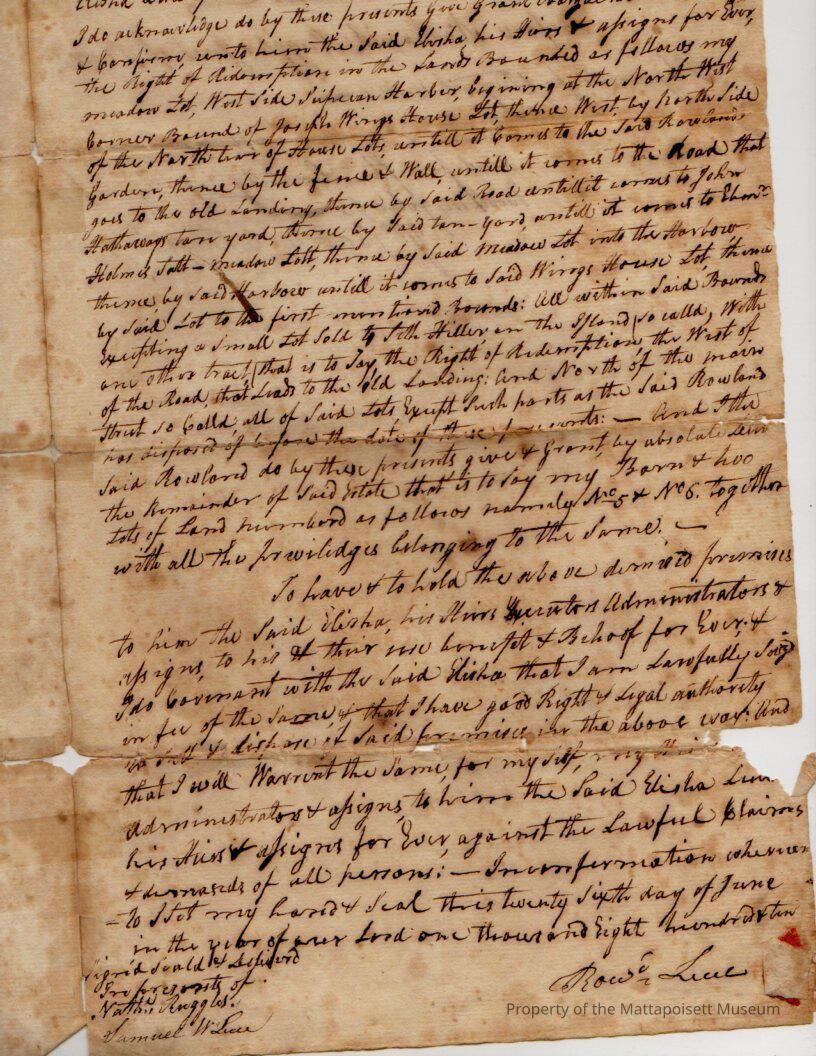 I do acknowledge do by these presents Give Grant
& Confirm unto him the Said Elisha his Hiers & assigns for Ever,
the Right of Ridemption in the Lands Bounded as follows my
meadow Lot, West Side Sipican Harber, begining at the North West
Corner Bound of Joseph Wings House Lot, thence West by North Side
of the North teer of House Lots, untill it Comes to the Said Rowlands
Garden, thence by the fence & Wall, untill it comes to the Road that
goes to the old Landing, thence by Said Road untill it comes to John
Hathaways tan yard, thence by Said tan-yard, untill it comes to Eben.r
Holmes Salt-meadow Lott, thence by Said meadow Lot into the Harbour
thence by Said Harbour untill it comes to Said Wings House Lot, thence
by Said Lot to the first mentiond Bounds: All within Said Bounds
Excepting a Small Lot Sold to Seth Hiller on the Island so calld, With
one other tract, that is to Say the Right of Redemption the West of
of the Road, that Leads to the Old Landing: And North of the main
Street so Calld, all of Said Lots Except Such parts as the Said Rowland
has disposed of before the date of these presents:— And I the
Said Rowland do by these presents give & Grant, by absolute Deed
the Remainder of Said Estate that is to Say my Barn & two
Lots of Land numberd as follows namely No 5 & No 6. together
with all the priviledges belonging to the Same.—
To have & to hold the above demised premises
to him the Said Elisha, his Hiers Executors Administrators &
assigns, to his & their use benefit & Behoof for Ever, &
I do Covenant with the Said Elisha that I am Lawfully Seizd
in fee of the Same, & that I have good Right & Legal authority
to Sell & dispose of Said premises in the above way: And
that I will Warrent the Same, for my Self, my
Administrators & assigns, to him the Said Elisha Luce
his Hiers & assigns for Ever, against the Lawful Claims
& demands of all persons:— In conformation whereun
-to I Set my hand & Seal this twenty Sixth day of June
in the year of our Lord one thousand Eight hundred & ten
Signd Seald & Deliverd
In presents of
Nathl Ruggles.
Samuel W Luce
Rowd Luce
Property of the Mattapoisett Museum